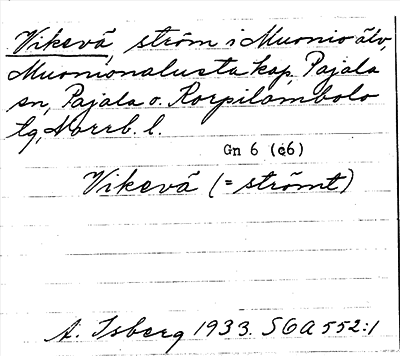 Vikevä, ström i Muonio älv,
Muonionalusta kap, Pajala
sn, Pajala o. Korpilombolo
tg, Norrb. l.
Gn 6 (c6)
Vikevä (= strömt)
A. Isberg 1933. SOA 552:1